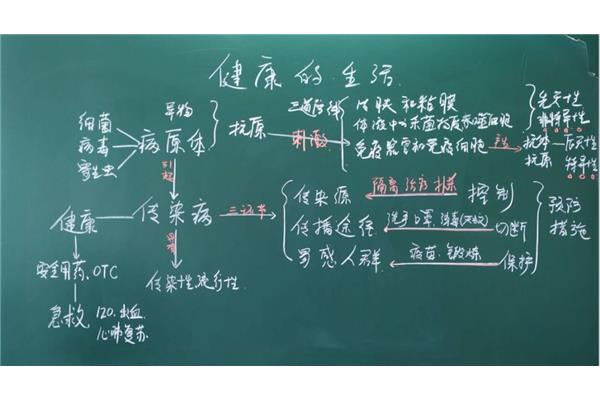 健康的生活
细菌
病毒
寄生虫
异物
病原体
抗原
三道防线
刺激
皮肤和粘膜
体液中的杀菌物质和吞噬细胞
免疫器官和免疫细胞
产生
先天性
非特异性
抗体
抗原
后天性
特异性
引起
健康
传染病
三环节
传染源
隔离 治疗
控制
传播途径
洗手 口罩 消毒
切断
易感人群
疫苗.锻炼
保护
预防
措施
传染性.流行性
安全用药.OTC
急救
120.出血
心肺复苏.